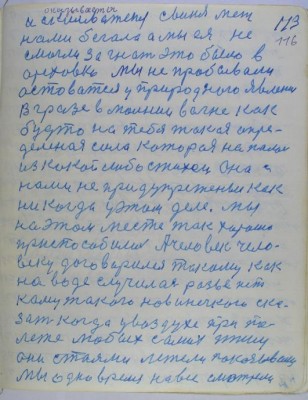 оказывается
113
116
и свинья
нами бегала а мы ея не
смогли загнат это было в
орховки мы не пробовали
остоватся у природного явления
в грозе в молнии в огне как
будто на тебя такая опре-
деленая сила которая напали
из какой либо стихои она с
нами не придупрежены как
никогда у этом деле. мы
на этом месте так хорошо
приспособились А человек чело-
веку договорился такому как
на воде случилас разве нет
кому такого новинского ска-
зат когда у воздухе при по-
лете любых самих птиц
они стаями летели показывали
мы одно время на вес смотрели